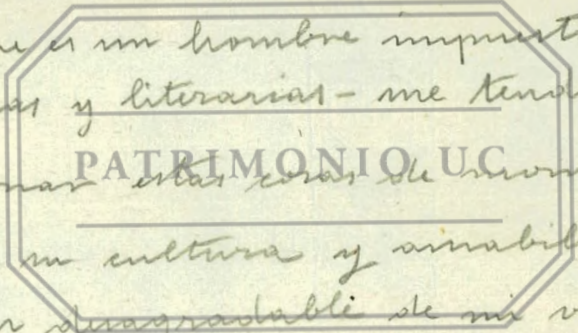 e es un hombre impuest
as y literarias - me tend
PATRIMONIO UC
nar estas cosas de mom
su cultura y amabil
r desagradable de mi v